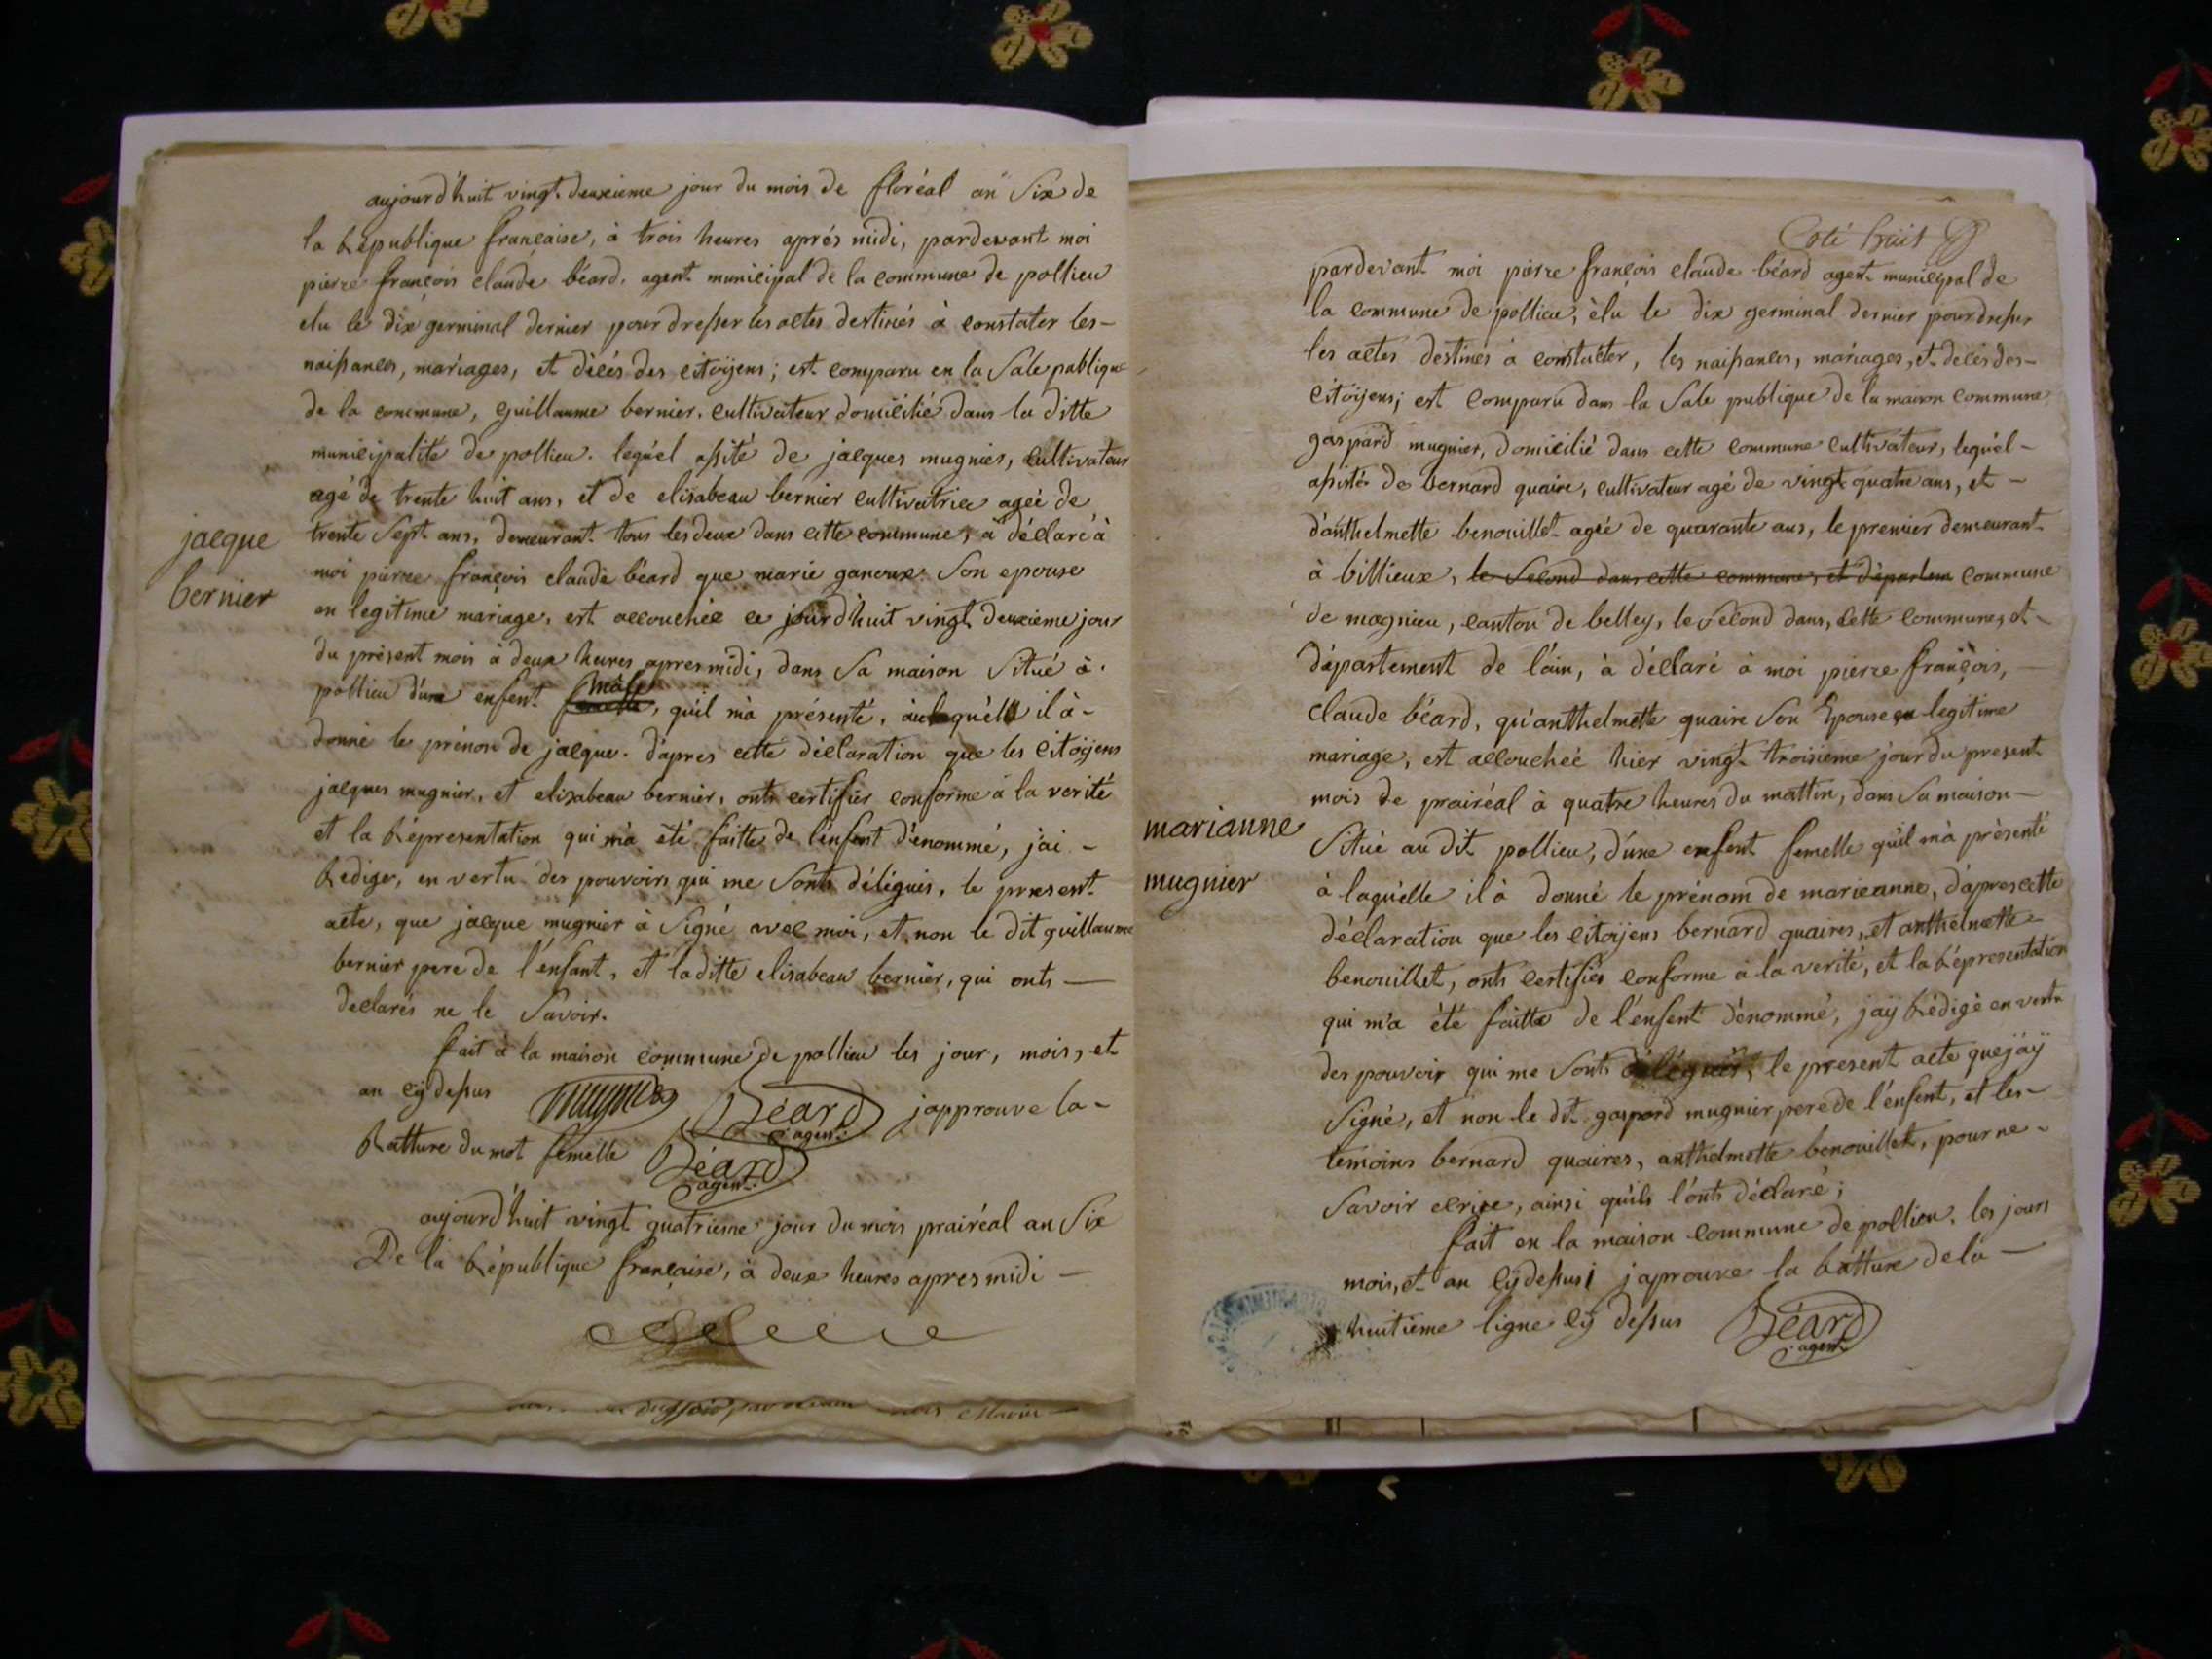 aujourd'huit vingt deuxieme jour du mois de floréal an six de
la République française, à trois heures après midi, pardevant moi
pierre françois claude béard, agent municipal de la commune de pollieu
elu le dix germinal dernier pour dresser les actes destinés à constater les-
naissances, mariages, et décés des citoÿens; est comparu en la sale publique
de la commune, guillaume bernier, cultivateur domicilié dans la ditte
municipalité de pollieu. lequ'el assité de jacques mugnier, cultivateur
agé de trente huit ans, et de elisabeau bernier cultivatrice agée de
trente sept ans, demeurant tous les deux dans cette commune, à déclaré à
jacque
bernier
moi pierre françois claude béard que marie ganoux son epouse
en legitime mariage, est accouchée ce jourd'huit vingt deuxieme jour
du présent mois à deux heures apres midi, dans sa maison situé à
pollieu d'une enfent femelle mâle, qu'il m'à présenté, auquèl il à-
donné le prénom de jacque. d'apres cette déclaration que les citoÿens
jacques mugnier, et elisabeau bernier, onts certifier conforme à la verité
et la Répresentation qui m'a été faitte de l'enfent d'énommé, j'ai -
Rediger, en vertu des pouvoirs qui me sonts délégués, le present
acte, que jacque mugnier à signé avec moi, et non le dit guillaume
bernier pere de l'enfant, et la ditte elisabeau bernier, qui onts —
declarés ne le savoir.
fait à la maison commune de pollieu les jour, mois, et
an cÿ dessus mugnier Béard agent japprouve la -
Ratture du mot femelle Béard agent.
aujourd'huit vingt quatrieme jour du mois prairéal an six
De la République française, à deux heures apres midi —
Coté huit
pardevant moi pierre françois claude béard agent municipal de
la commune de pollieu, èlu le dix germinal dernier pour dresser
les actes destinés à constatéter, les naissances, mariages, et decés des-
citoÿens; est comparu dans la sale publique de la maison commune
gaspard mugnier, domicilié dans cette commune cultivateur, lequèl-
assisté de bernard quaire, cultivateur agé de vingt quatre ans, et -
d'anthelmette benouillet agée de quarante ans, le premier demeurant
à billieux, le second dans cette commune, et départem commune
de magnieu, canton de belley, le second dans, cette commune, et -
département de l'ain, à déclaré à moi pierre françois,
claude béard, qu'anthelmette quaire son Epouse en legitime
mariage, est accouchée hier vingt troisieme jour du present
mois de prairéal à quatre heures du mattin, dans sa maison-
marianne
mugnier
situé au dit pollieu, d'une enfent femelle qu'il m'à présenté
à laquèlle il à donné le prénom de marieanne, d'apres cette
déclaration que les citoÿens bernard quaires, et anthelmette
benouillet, onts certifiés conforme à la verité, et la Répresentation
qui m'a été faitte de l'enfent dénommé, jaÿ Rédigé en vertu
des pouvoir qui me sonts délégués, le present acte que jaÿ
signé, et non le dit gaspard mugnier pere de l'enfent, et les-
temoins bernard quaires, anthelmette benouillet, pour ne -
savoir ecrire, ainsi qu'ils l'onts déclaré;
fait en la maison commune de pollieu, les jours
mois, et an cÿ dessus j japrouve la Ratture de la —
huitieme ligne cÿ dessus Béard agent.